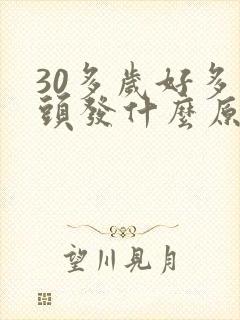 30多歲好多
頭發什麼原
望川見月